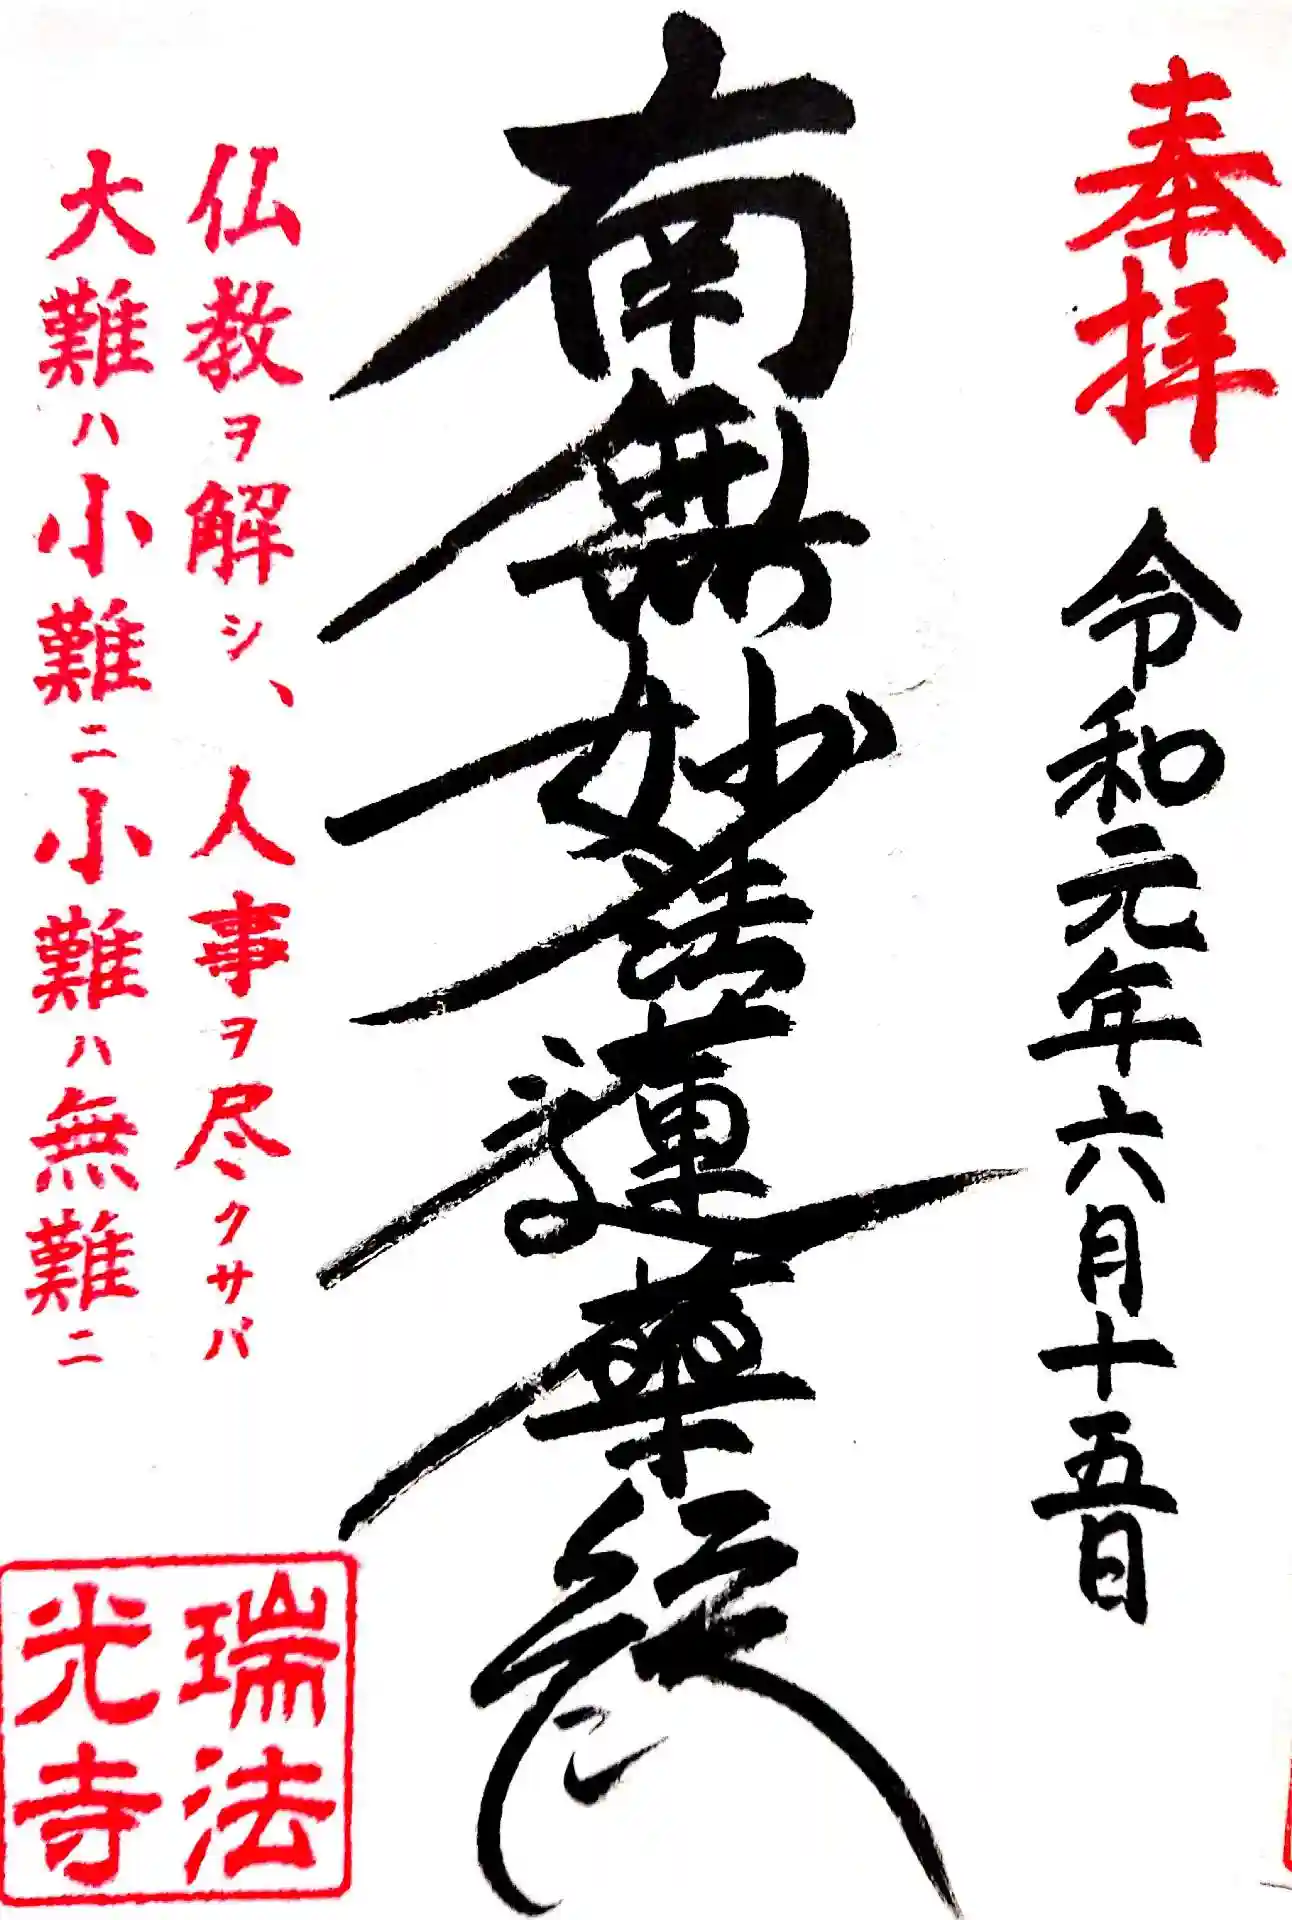 奉拝
令和元年六月十五日
南無妙法蓮華経
仏教ヲ解シ、人事ヲ尽クサバ
大難ハ小難ニ小難ハ無難ニ
瑞法
光寺